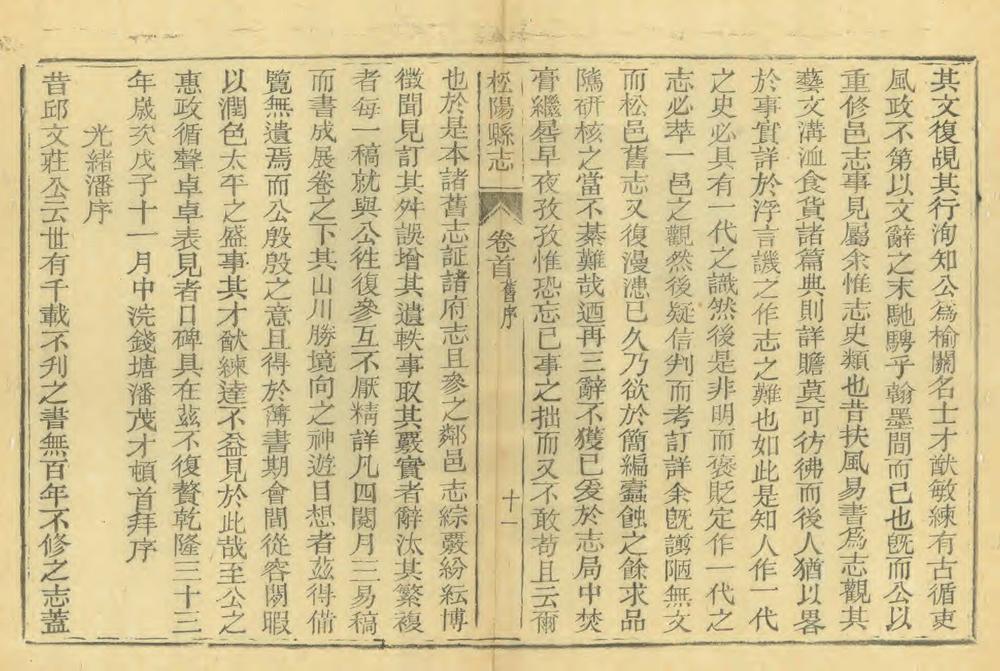 其文復覘其行洵知公爲榆關名士才猷敏練有古循吏
風政不第以文辭之末馳騁乎翰墨間而已也旣而公以
重修邑志事見屬余惟志史類也昔扶風易書爲志觀其
藝文溝洫食貨諸篇典則詳贍莫可彷彿而後人猶以畧
於事實詳於浮言譏之作志之難也如此是知人作一代
之史必具有一代之識然後是非明而褒貶定作一代之
志必萃一邑之觀然後疑信判而考訂詳余旣謭陋無文
而松邑舊志又復漫漶已久乃欲於簡編蠹蝕之餘求品
隲研核之當不綦難哉迺再三辭不獲已爰於志局中焚
膏繼晷早夜孜孜惟恐忘已事之拙而又不敢苟且云爾
松陽縣志 卷首 舊序 十一
也於是本諸舊志証諸府志且參之鄰邑志綜覈紛紜博
徵聞見訂其舛誤增其遺軼事取其覈實者辭汰其繁複
者每一稿就與公徃復參互不厭精詳凡四閱月三易稿
而書成展卷之下其山川勝境向之神遊目想者茲得備
覽無遺焉而公殷殷之意且得於薄書期會間從容閒暇
以潤色太平之盛事其才猷練達不益見於此哉至公之
惠政循聲卓卓表見者口碑具在茲不復贅乾隆三十三
年嵗次戊子十一月中浣錢塘潘茂才頓首拜序
光緒潘序
昔邱文莊公云世有千載不刋之書無百年不修之志蓋